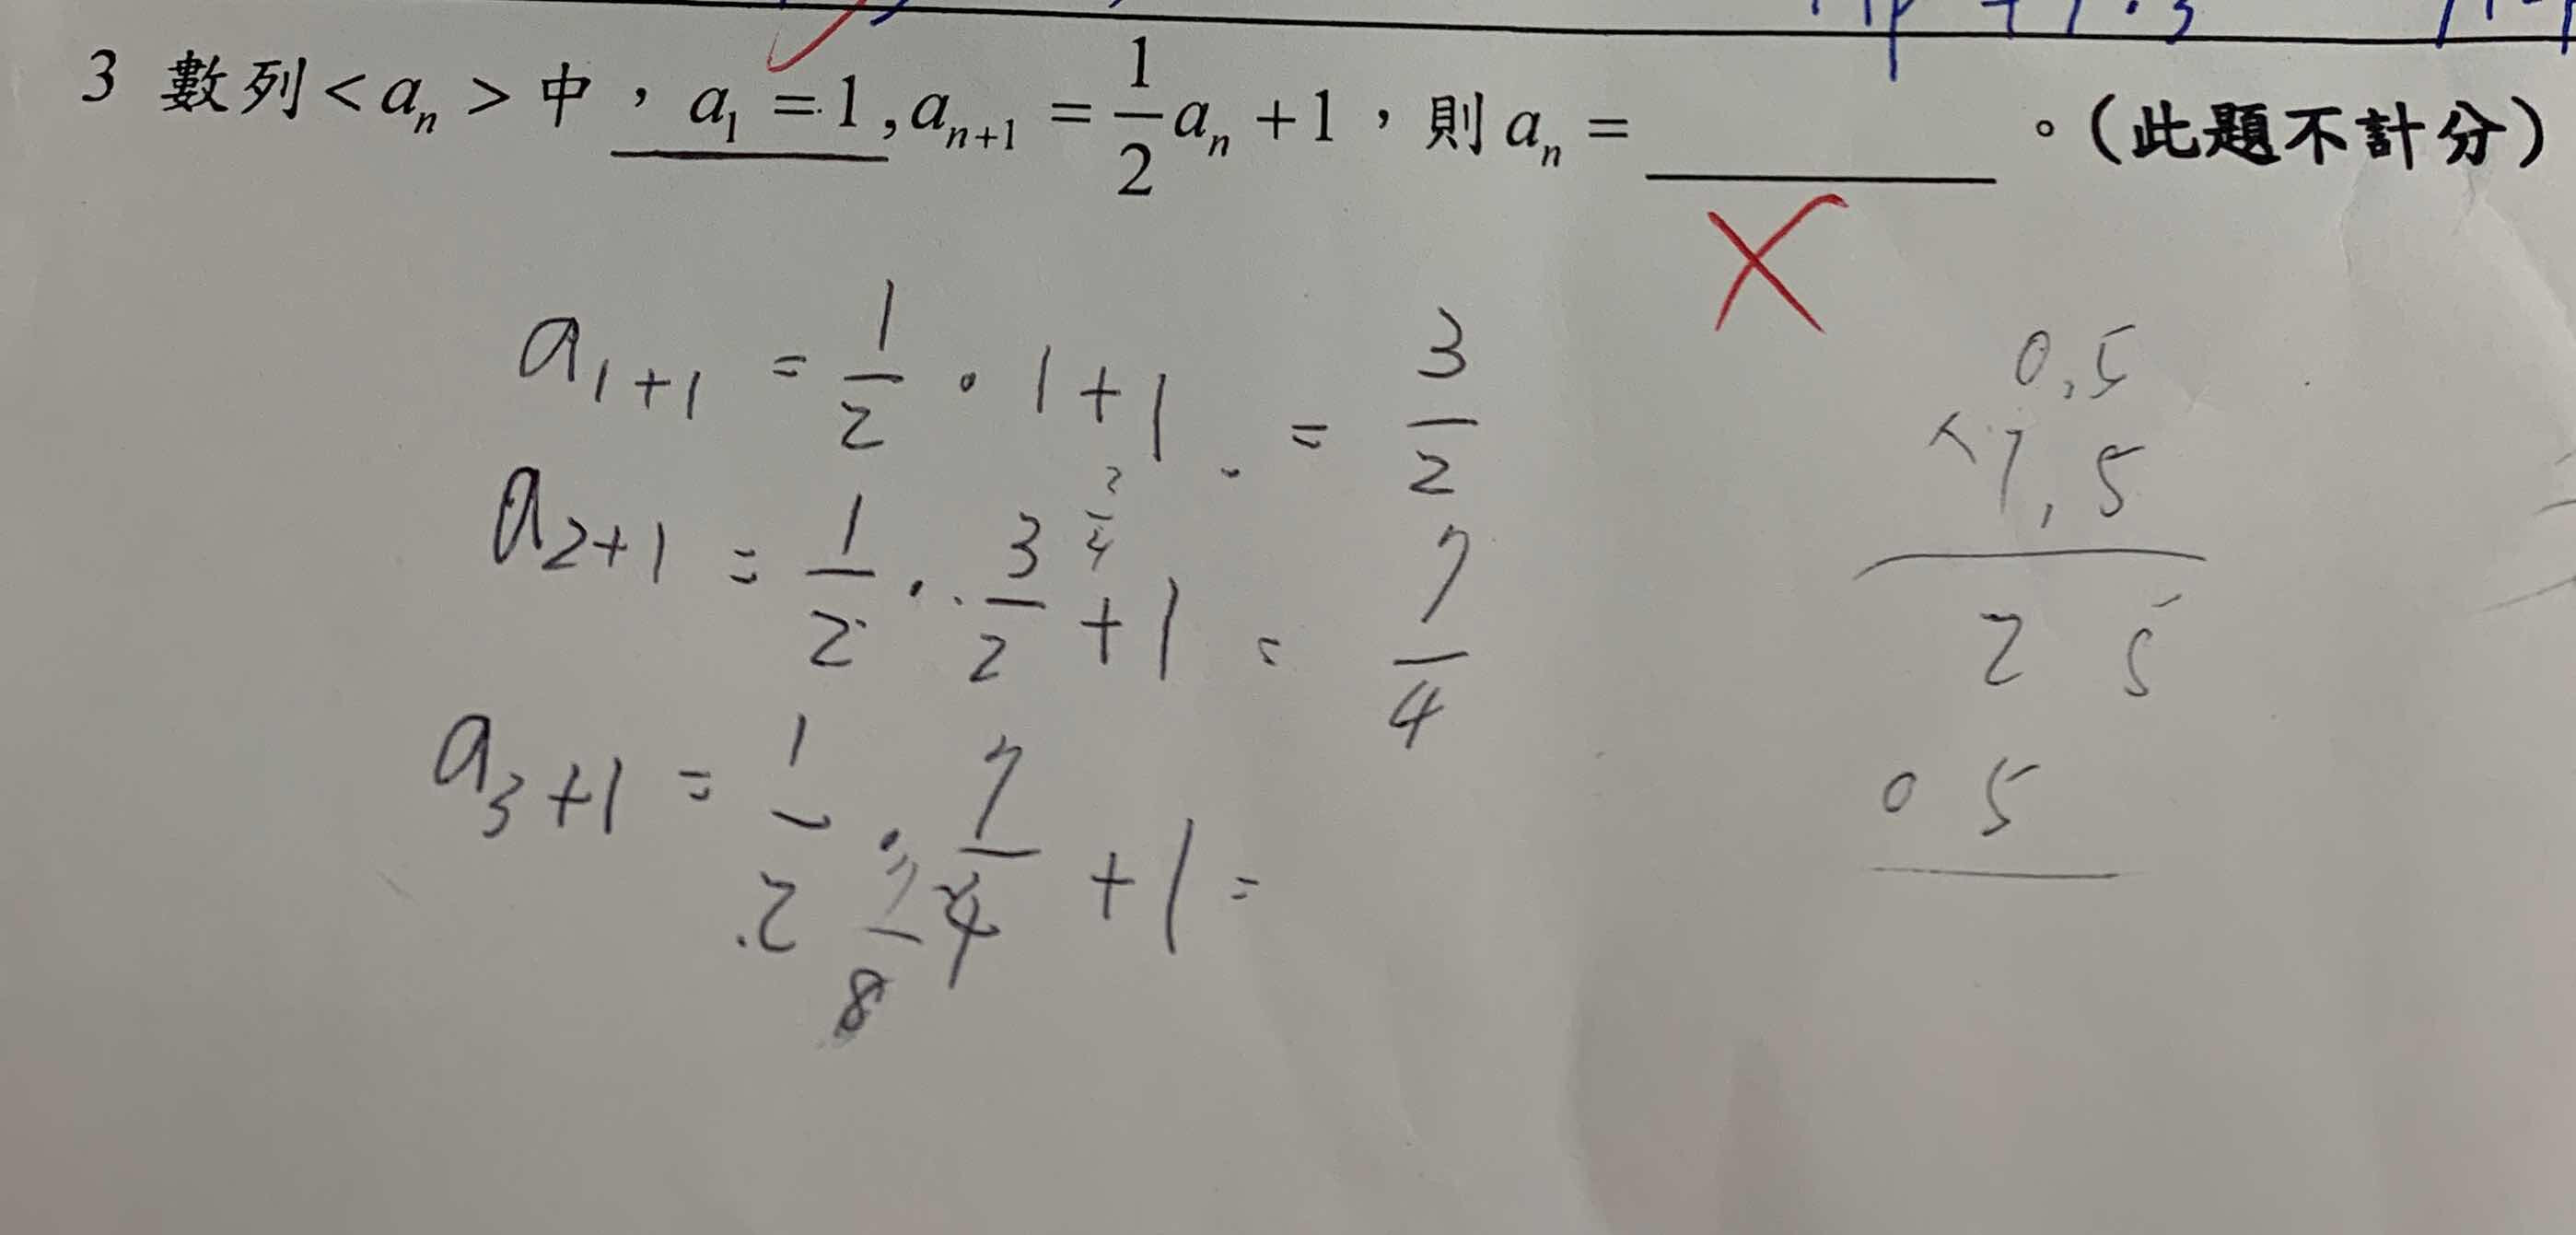 3 數列<aₙ>中，a₁=1,aₙ₊₁=1/2 aₙ+1，則aₙ=________。(此題不計分)
a₁₊₁ = 1/2 · 1+1 = 3/2
a₂₊₁ = 1/2 · 3/2 + 1 = 7/4
a₃₊₁ = 1/2 · 7/4 + 1 =
7/8
0.5
×1.5
2 5
0 5